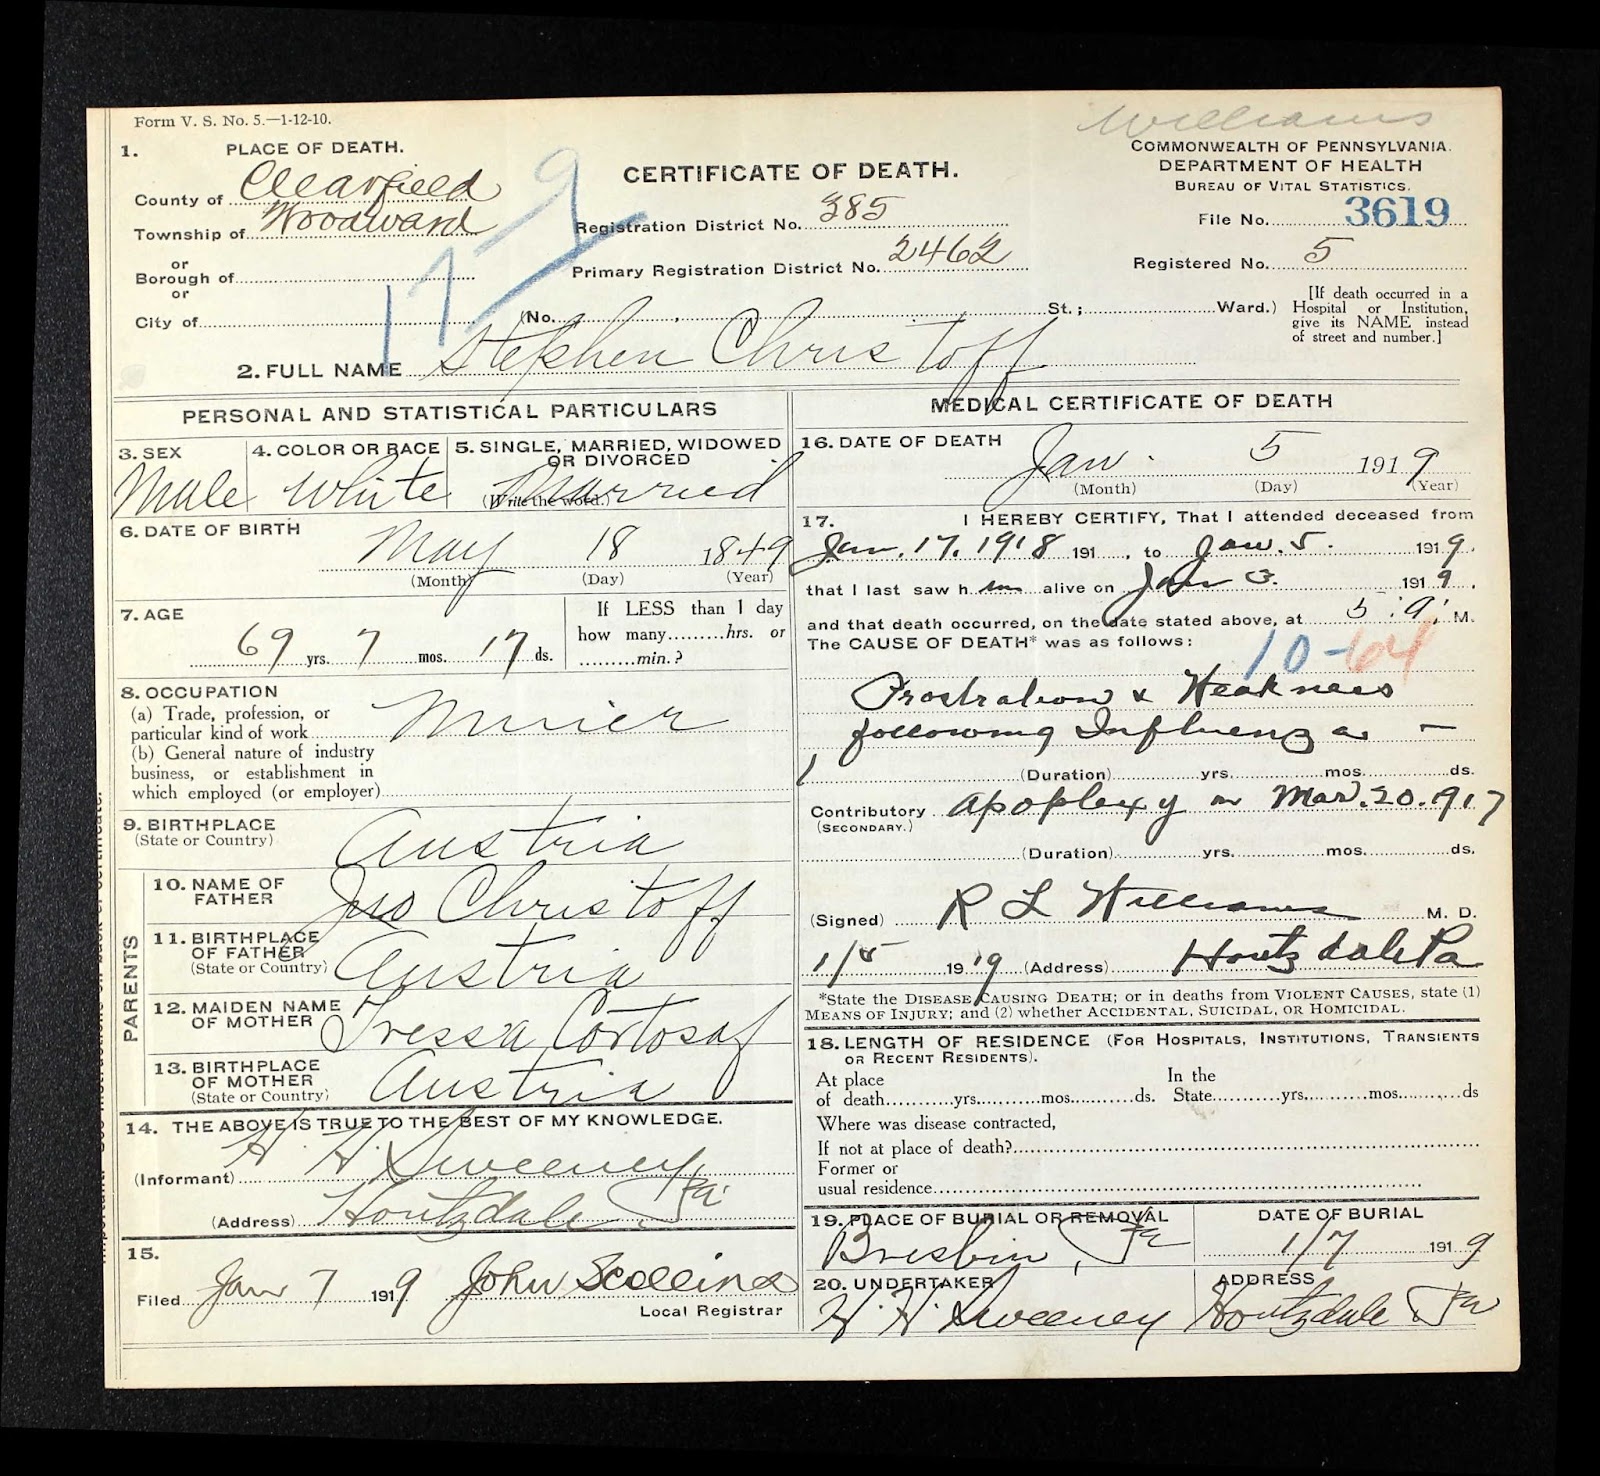 Form V. S. No. 5.—1-12-10.
Williams
1. PLACE OF DEATH.
County of Clearfield
Township of Woodward
or
Borough of
or
City of
179
CERTIFICATE OF DEATH.
Registration District No. 385
Primary Registration District No. 2462
(No. St.; Ward.)
COMMONWEALTH OF PENNSYLVANIA.
DEPARTMENT OF HEALTH
BUREAU OF VITAL STATISTICS.
File No. 3619
Registered No. 5
[If death occurred in a
Hospital or Institution,
give its NAME instead
of street and number.]
2. FULL NAME Stephen Christoff
PERSONAL AND STATISTICAL PARTICULARS
3. SEX
Male
4. COLOR OR RACE
White
5. SINGLE, MARRIED, WIDOWED
OR DIVORCED
(Write the word.)
Married
6. DATE OF BIRTH
May 18 1849
(Month) (Day) (Year)
7. AGE
69 yrs. 7 mos. 17 ds.
If LESS than 1 day
how many hrs. or
min.?
8. OCCUPATION
(a) Trade, profession, or
particular kind of work Miner
(b) General nature of industry
business, or establishment in
which employed (or employer)
9. BIRTHPLACE
(State or Country)
Austria
PARENTS
10. NAME OF
FATHER
Jno Christoff
11. BIRTHPLACE
OF FATHER
(State or Country)
Austria
12. MAIDEN NAME
OF MOTHER
Tressa
13. BIRTHPLACE
OF MOTHER
(State or Country)
Austria
14. THE ABOVE IS TRUE TO THE BEST OF MY KNOWLEDGE.
(Informant) H. H. Sweeney
(Address) Houtzdale, Pa.
15.
Filed Jan 7 1919 John Scollins
Local Registrar
MEDICAL CERTIFICATE OF DEATH
16. DATE OF DEATH
Jan. 5 1919
(Month) (Day) (Year)
17. I HEREBY CERTIFY, That I attended deceased from
Jan. 17. 1918 191 , to Jan. 5. 1919.
that I last saw h im alive on Jan 3. 1919.
and that death occurred, on the date stated above, at 5 a. M.
The CAUSE OF DEATH* was as follows:
10-64
Prostration & Weakness
following Influenza —
(Duration) yrs. mos. ds.
Contributory Apoplexy on Mar. 20. 1917
(SECONDARY.)
(Duration) yrs. mos. ds.
(Signed) R L Williams M. D.
1/5 1919 (Address) Houtzdale Pa
*State the DISEASE CAUSING DEATH; or in deaths from VIOLENT CAUSES, state (1)
MEANS OF INJURY; and (2) whether ACCIDENTAL, SUICIDAL, OR HOMICIDAL.
18. LENGTH OF RESIDENCE (FOR HOSPITALS, INSTITUTIONS, TRANSIENTS
OR RECENT RESIDENTS).
At place
of death yrs. mos. ds.
In the
State yrs. mos. ds
Where was disease contracted,
If not at place of death?
Former or
usual residence
19. PLACE OF BURIAL OR REMOVAL
Brisbin, Pa
DATE OF BURIAL
1/7 1919
20. UNDERTAKER
H. H. Sweeney
ADDRESS
Houtzdale Pa